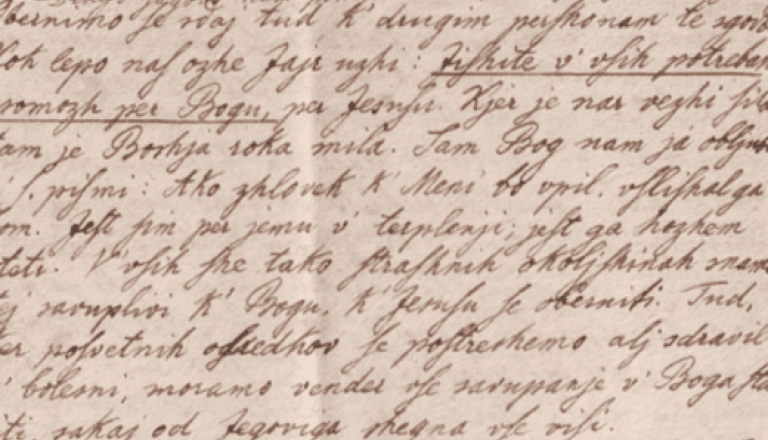 bernimo se sdaj tud k' drugim pershonam te sgod
lok lepo nas ozhe Jajr uzhi: Jishite v' vsih potrebah
romozh per Bogu, per Jesusu. Kjer je nar vezhi sila
tam je Boshja roka mila. Sam Bog nam ja obljub
S. pismi: Ako zhlovek k' Meni bo vpil, vslishal ga
om. Jest sim per jemu v' terplenji, jest ga hozhem
teti. V' vsih she tako strashnih okoljshinah mamo
ej savuplivi k' Bogu, k' Jesusu se oberniti. Tud,
er posvetnih osredkov se postreshemo alj sdravil
v' bolesni, moramo vender vse savupanje v' Boga sta
iti, sakaj od Jegoviga shegna vse visi.